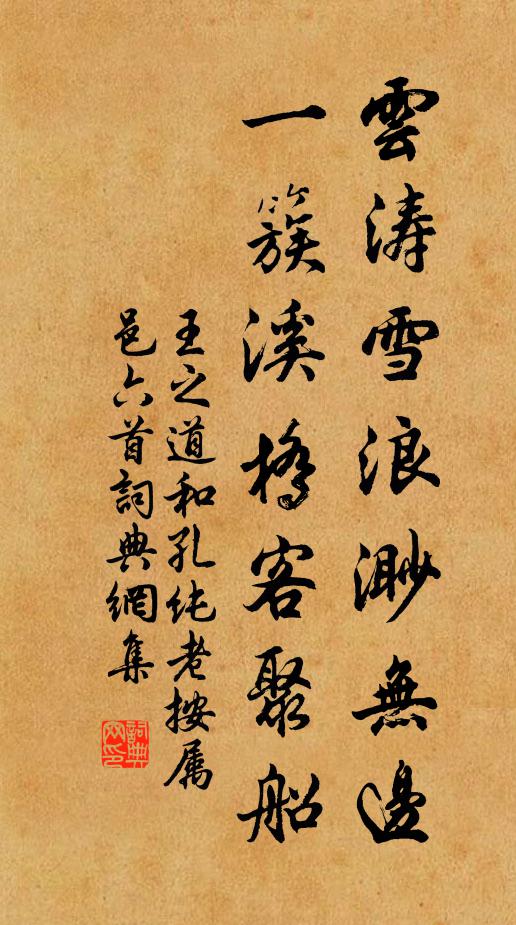 雲涛雪浪渺無邊
一簇溪橋客聚船
王之道和孔纯老按属
邑六首詞典網集
詞典網印